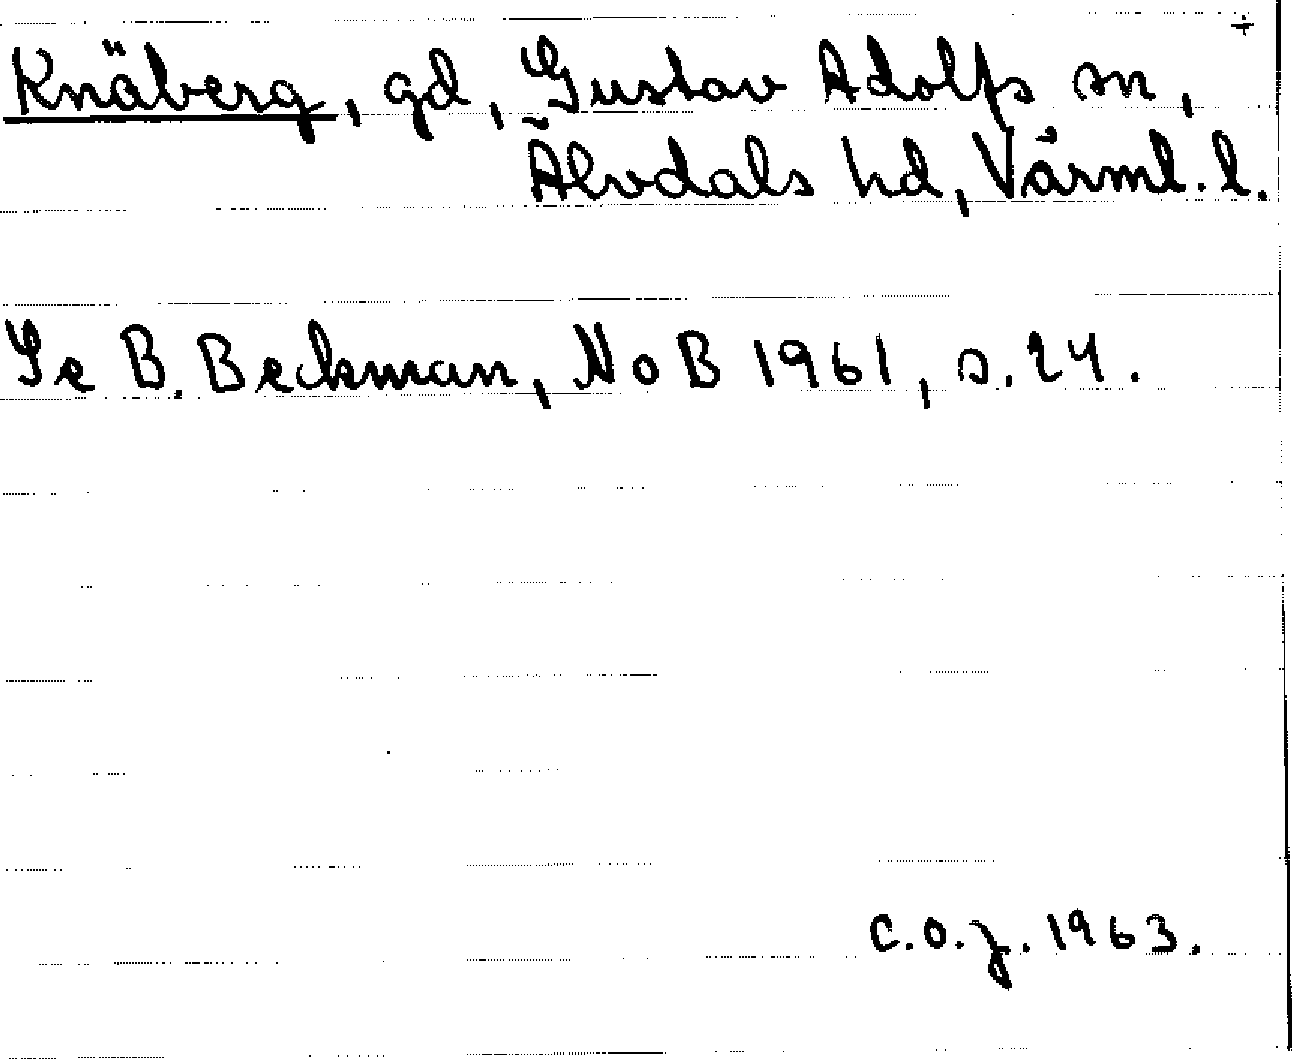 +
Knäberg, gd, Gustav Adolfs sn,
Älvdals hd, Värml. l.
Se B. Beckman, NoB 1961, s. 24.
C.O.J. 1963.